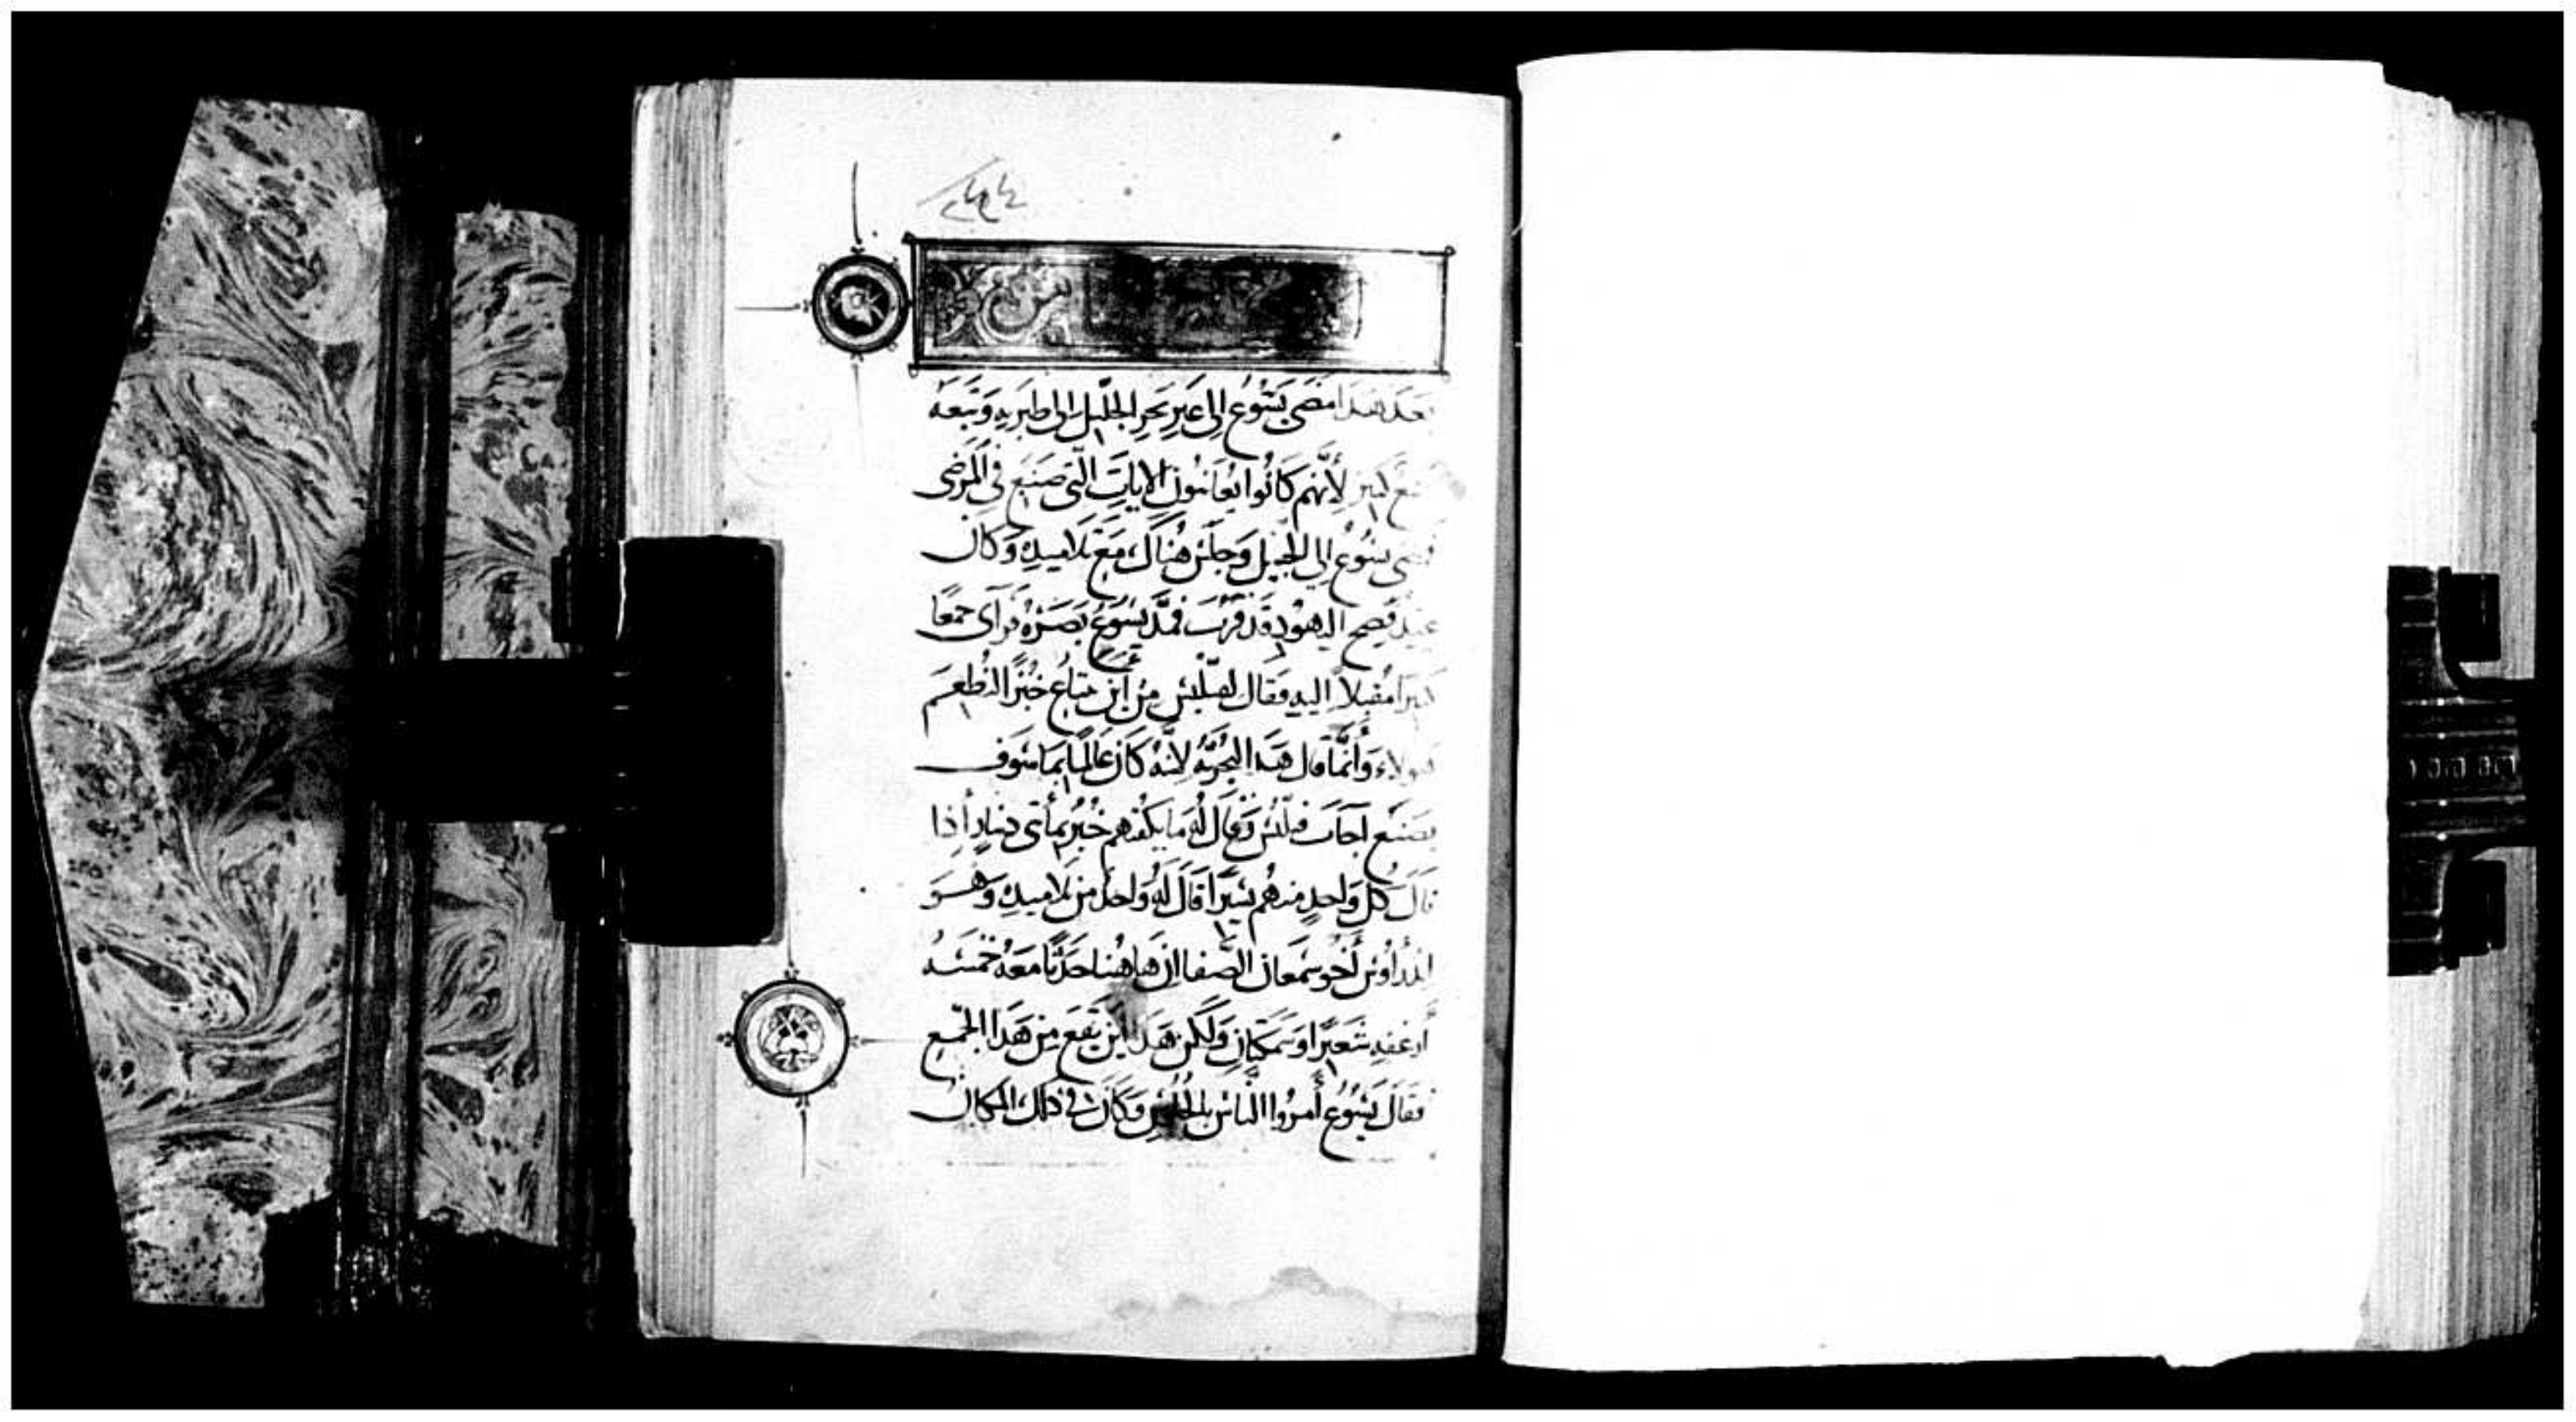 بعد هذا مضى يسوع الى عبر بحر الجليل الى طبريه وتبعه
جمع كبير لأنهم كانوا يعاينون الايات التي صنع في المرضى
فمضى يسوع إلى الجبل وجلس هناك مع تلاميذه وكان
عيد فصح اليهود قد قرب فمد يسوع بصره فرآى جمعًا
كبيرا مقبلاً اليه فقال لفيلبس من اين نبتاع خبزًا لنطعم
هولاء وأنما قال هذا لأنه كان عالمًا بما سوف
يصنع اجاب فيلبس وقال له ما يكفيهم خبز بمأتي دينار أذا
نال كل واحد منهم يسيرًا قال له واحد من تلاميذه وهو
اندراوس أخو سمعان الصفا ان هاهنا حدثًا معه خمسه
أرغفه شعيرًا وسمكتان ولكن هذا اين يقع من هذا الجمع
فقال يسوع أمروا الناس بالجلوس وكان في ذلك المكان